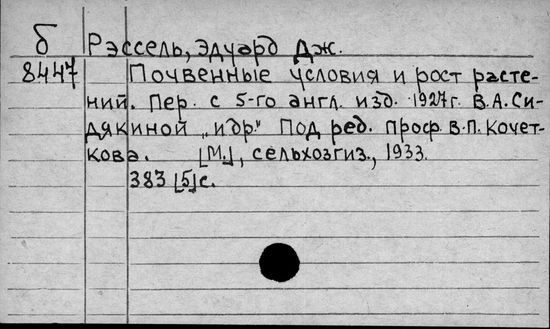 б Рэссель, Эдуард Дж.
8447 Почвенные условия и рост расте-
ний. Пер. с 5-го англ. изд. 1927г. В.А.Си-
дякиной „идр." Под ред. проф. В.П.Кочет-
кова. [М.], сельхозгиз., 1933.
383 [5] с.